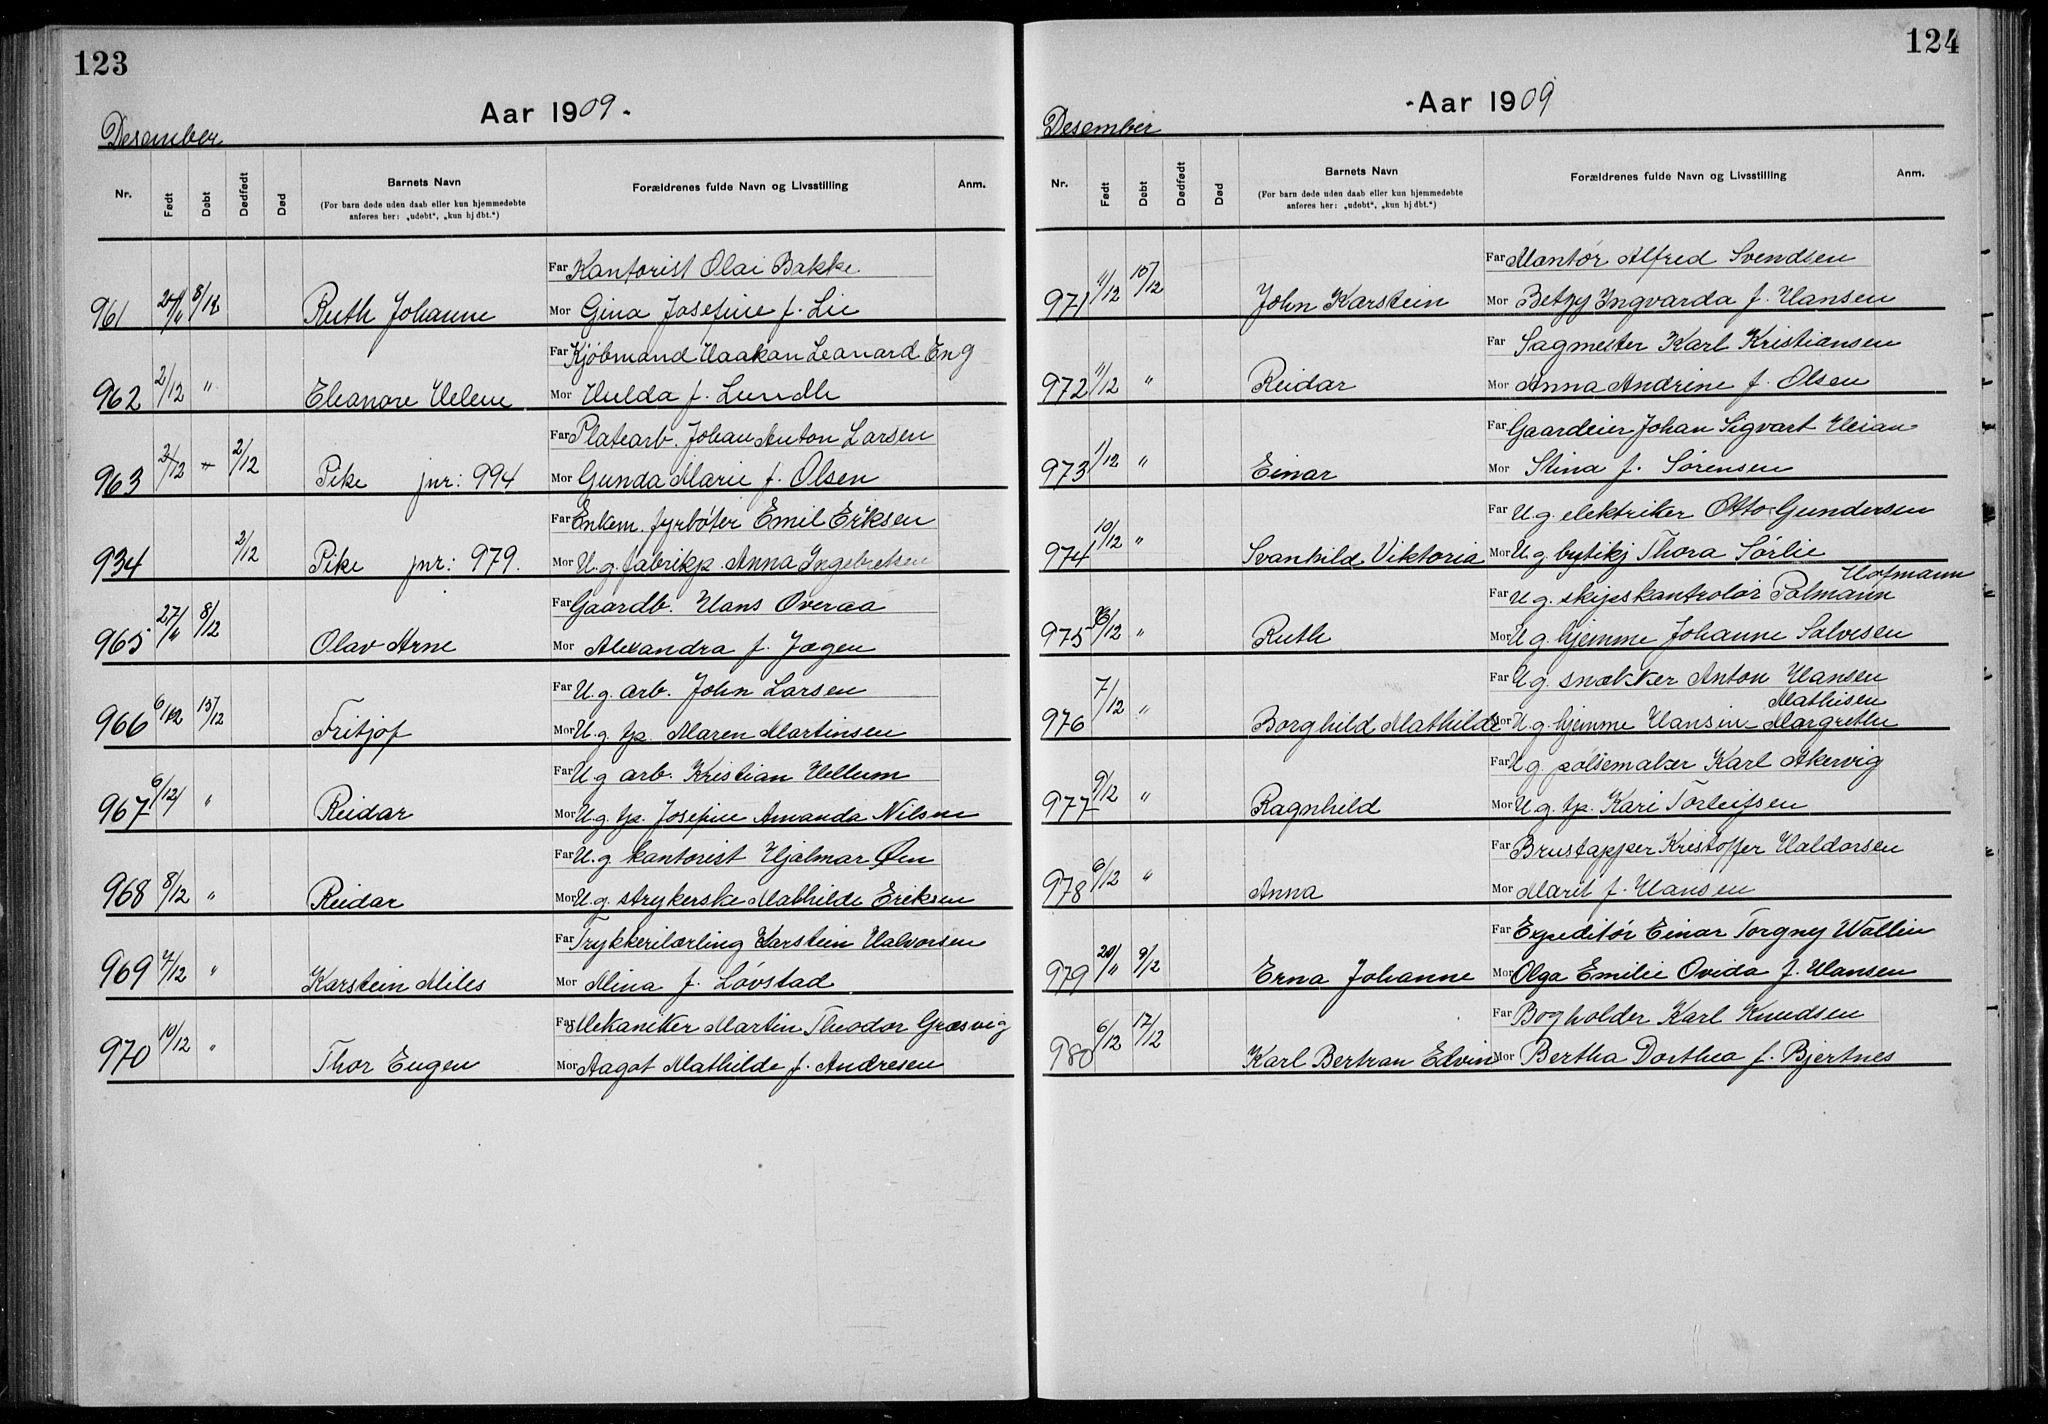 123
Aar 1909.
Desember
Nr. Født Døbt Dødfødt Død Barnets Navn Forældrenes fulde Navn og Livsstilling Anm.
(For barn døde uden daab eller kun hjemmedøbte
anføres her: „udøbt", „kun hj dbt.")
Far Kantorist Olai Bakke
961 8/12 Ruth Johanne Mor Gina Josefine f. Lie
Far Kjøbmand Haakan Leonard Eng
962 2/12 " Eleanore Helene Mor Hulda f. Lundh
Far Platearb. Johan Anton Larsen
963 2/12 " 2/12 Pike jnr: 994 Mor Gunda Marie f. Olsen
Far Enkem. fyrbøter Emil Eriksen
934 2/12 Pike jnr: 979. Mor U.g. fabrikp. Anna Ingebretsen
Far Gaardb. Hans Overaa
965 27/11 8/12 Olav Arne Mor Alexandra f. Jægen
Far U.g. arb. John Larsen
966 6/12 15/12 Fritjof Mor U.g. tp. Maren Martinsen
Far U.g arb. Kristian Hellum
967 6/12 " Reidar Mor U.g. tp. Josefine Amanda Nilsen
Far U.g. kantorist Hjalmar Øen
968 8/12 " Reidar Mor U.g. strykerske Mathilde Eriksen
Far Trykkerilærling Karstein Halvorsen
969 7/12 " Karstein Miles Mor Mina f. Løvstad
Far Mekaniker Martin Theodor Græsvig
970 10/12 " Thor Eugen Mor Aagot Mathilde f. Andresen
124
Aar 1909
Desember
Nr. Født Døbt Dødfødt Død Barnets Navn Forældrenes fulde Navn og Livsstilling Anm.
(For barn døde uden daab eller kun hjemmedøbte
anføres her: „udøbt", „kun hj dbt.")
Far Montør Alfred Svendsen
971 11/12 15/12 John Karstein Mor Betzy Ingvarda f. Hansen
Far Sagmester Karl Kristiansen
972 11/12 " Reidar Mor Anna Andrine f. Olsen
Far Gaardeier Johan Sigvart Heian
973 1/12 " Einar Mor Stina f. Sørensen
Far U.g. elektriker Otto Gundersen
974 10/12 " Svanhild Viktoria Mor U.g. bytikj Thora Sørlie
Hofmann
Far U.g. skipskontrolør Palmann
975 /12 " Ruth Mor U.g. hjemme Johanne Salvesen
Far U.g. snekker Anton Hansen
Mathisen
976 7/12 " Borghild Mathilde Mor U.g. hjemme Hansine Margrethe
Far U.g. pølsemaker Karl Akervig
977 9/12 " Ragnhild Mor U.g. tp. Kari Torleifsen
Far Brustapper Kristoffer Haldorsen
978 6/12 " Anna Mor Marit f. Hansen
Far Expeditør Einar Torgny Wallin
979 20/11 9/12 Erna Johanne Mor Olga Emilie Ovida f. Hansen
Far Bogholder Karl Knudsen
980 6/12 17/12 Karl Bertran Edvin Mor Bertha Dorthea f. Bjertnes